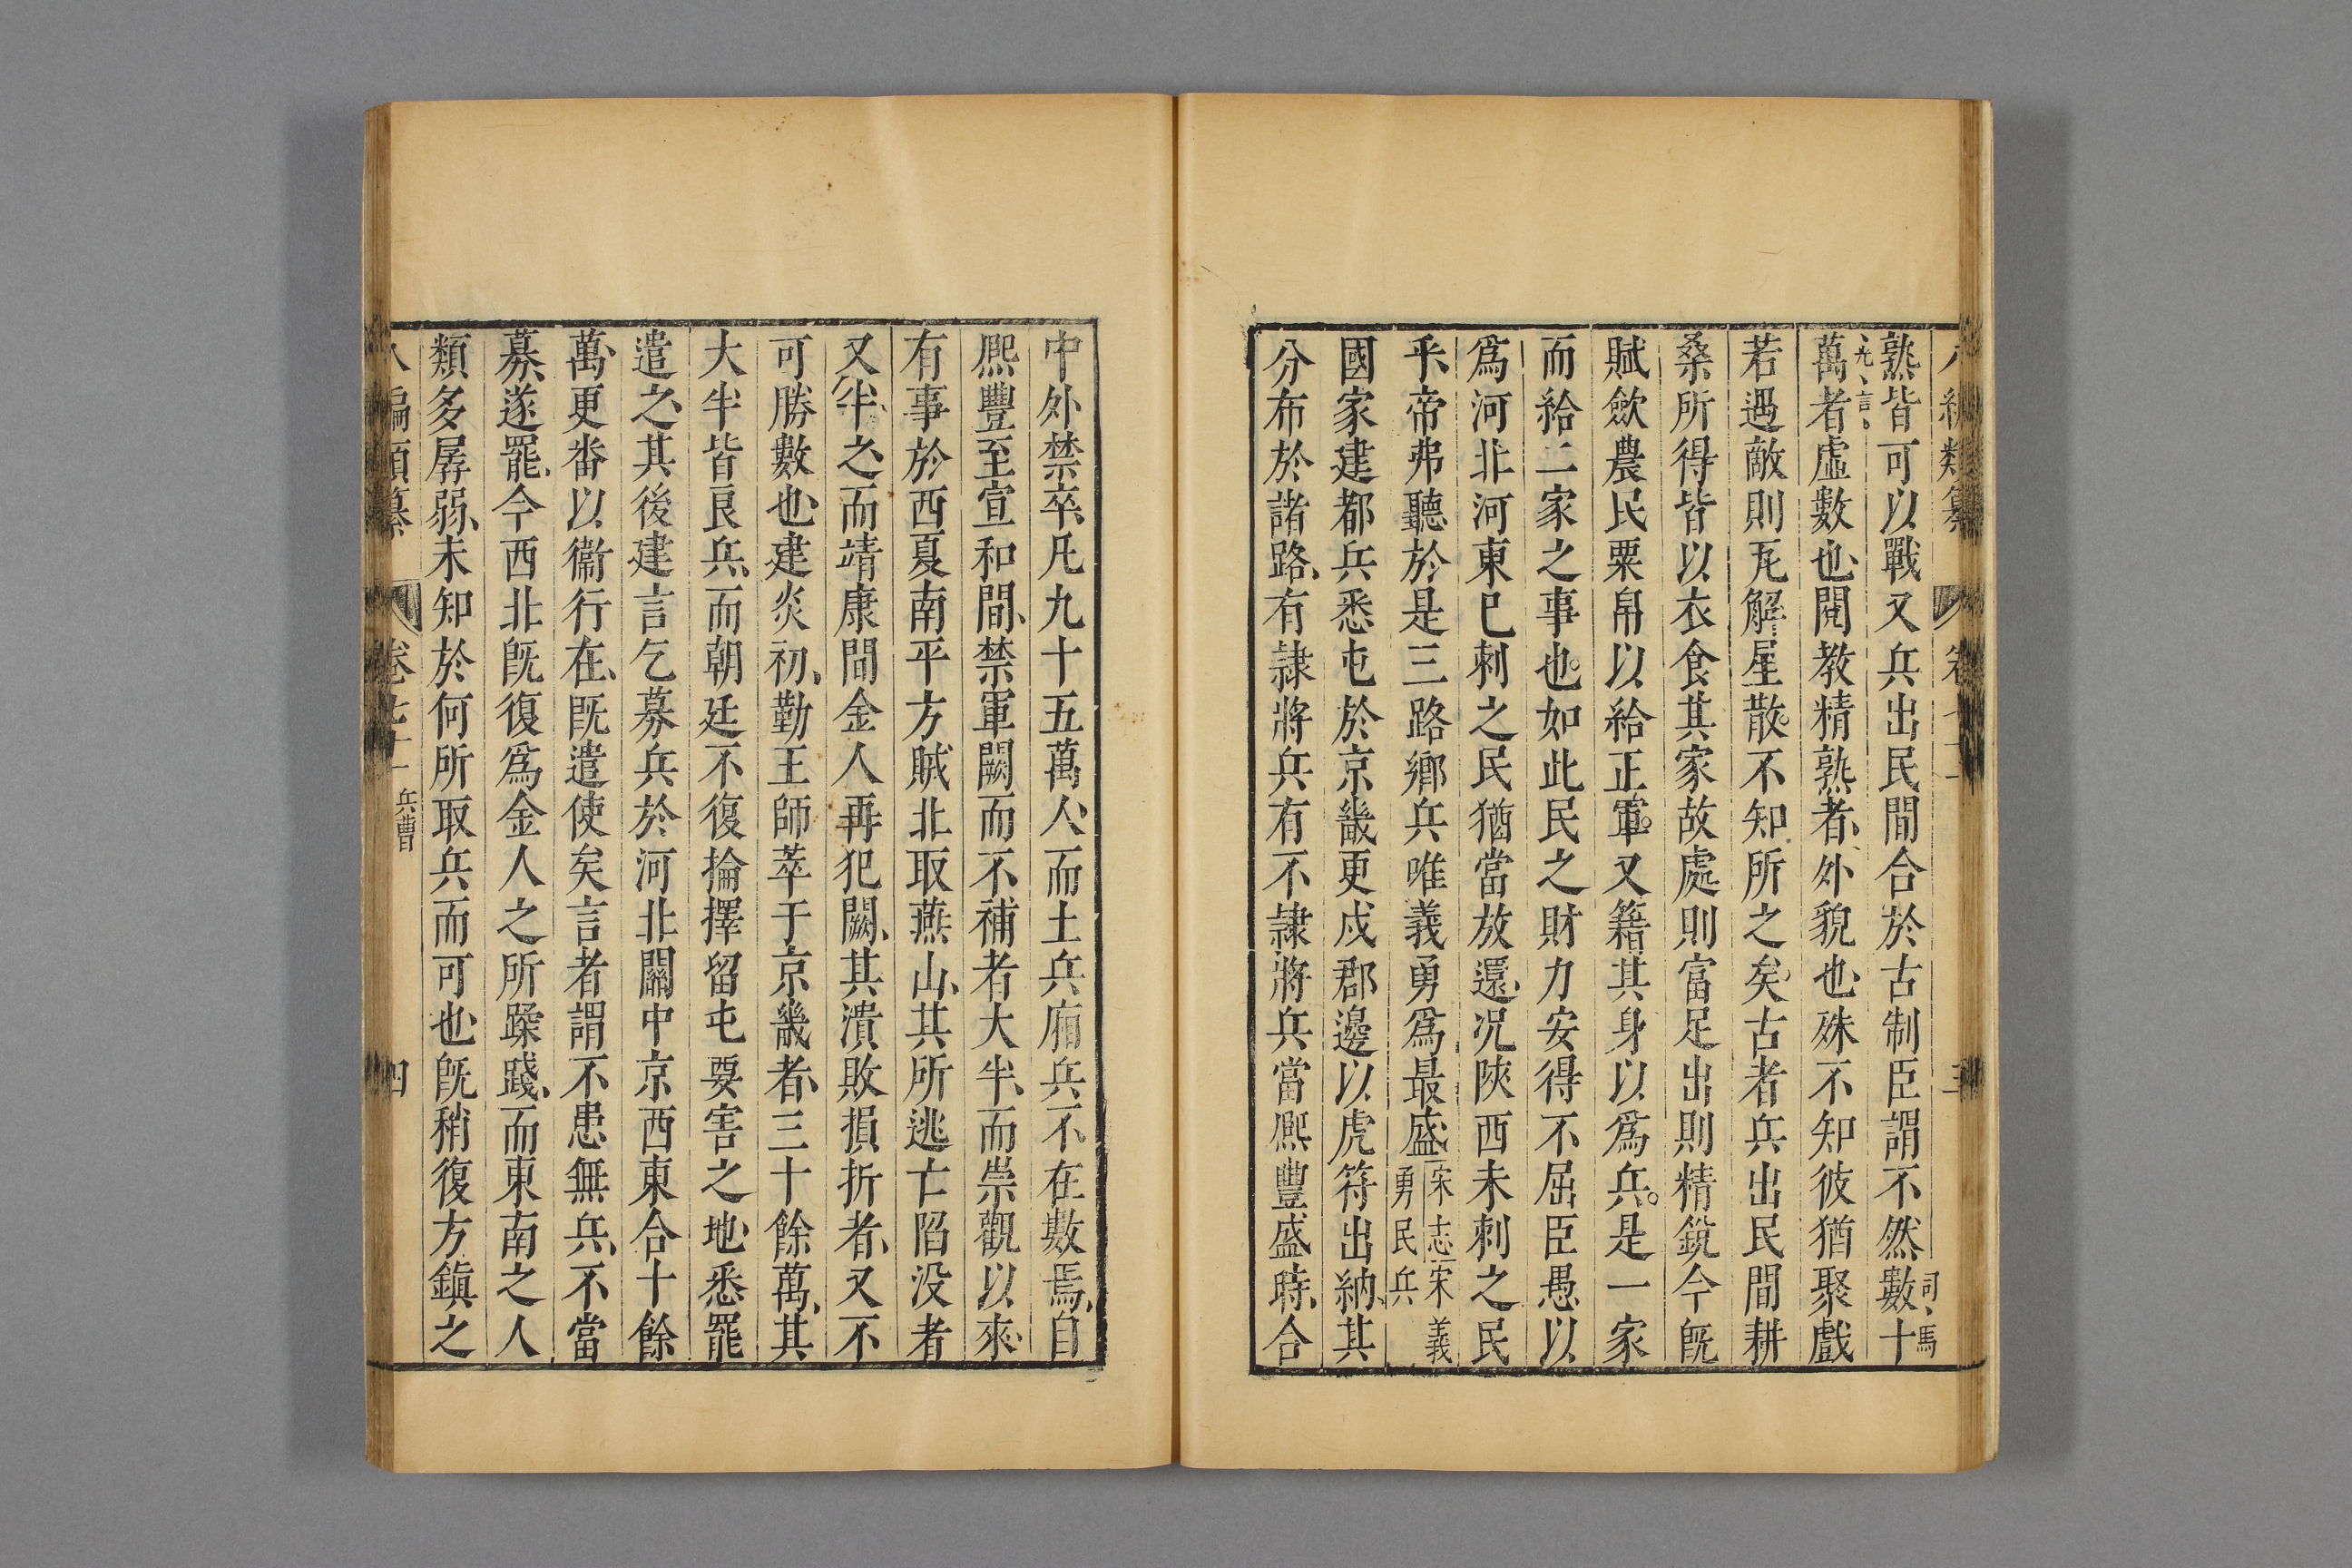 八編類纂 卷七十一 三
熟皆可以戰又兵出民間合於古制臣謂不然數十
司馬光言
萬者虛數也閱教精熟者外貌也殊不知彼猶聚戲
若遇敵則瓦解星散不知所之矣古者兵出民間耕
桑所得皆以衣食其家故處則富足出則精銳今旣
賦斂農民粟帛以給正軍又籍其身以爲兵是一家
而給二家之事也如此民之財力安得不屈臣愚以
爲河北河東已刺之民猶當放還况陝西未刺之民
乎帝弗聽於是三路鄉兵唯義勇爲最盛宋志宋義
勇民兵
國家建都兵悉屯於京畿更戍郡邊以虎符出納其
分布於諸路有隷將兵有不隷將兵當熈豐盛時合
中外禁卒凡九十五萬人而土兵廂兵不在數焉自
熈豐至宣和間禁軍闕而不補者大半而崇觀以來
有事於西夏南平方賊北取燕山其所逃亡陷没者
又半之而靖康間金人再犯闕其潰敗損折者又不
可勝數也建炎初勤王師萃于京畿者三十餘萬其
大半皆良兵而朝廷不復掄擇留屯要害之地悉罷
遣之其後建言乞募兵於河北關中京西東合十餘
萬更畨以衞行在旣遣使矣言者謂不患無兵不當
募遂罷今西北旣復爲金人之所蹂踐而東南之人
類多孱弱未知於何所取兵而可也旣稍復方鎭之
八編類纂 卷七十一 兵曹 四